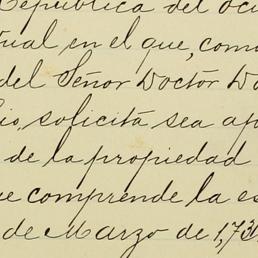 República del Ecu
tual en el que, como
del Señor Doctor Do
io, solicita sea ap
de la propiedad
ue comprende la es
de Marzo de 1,73